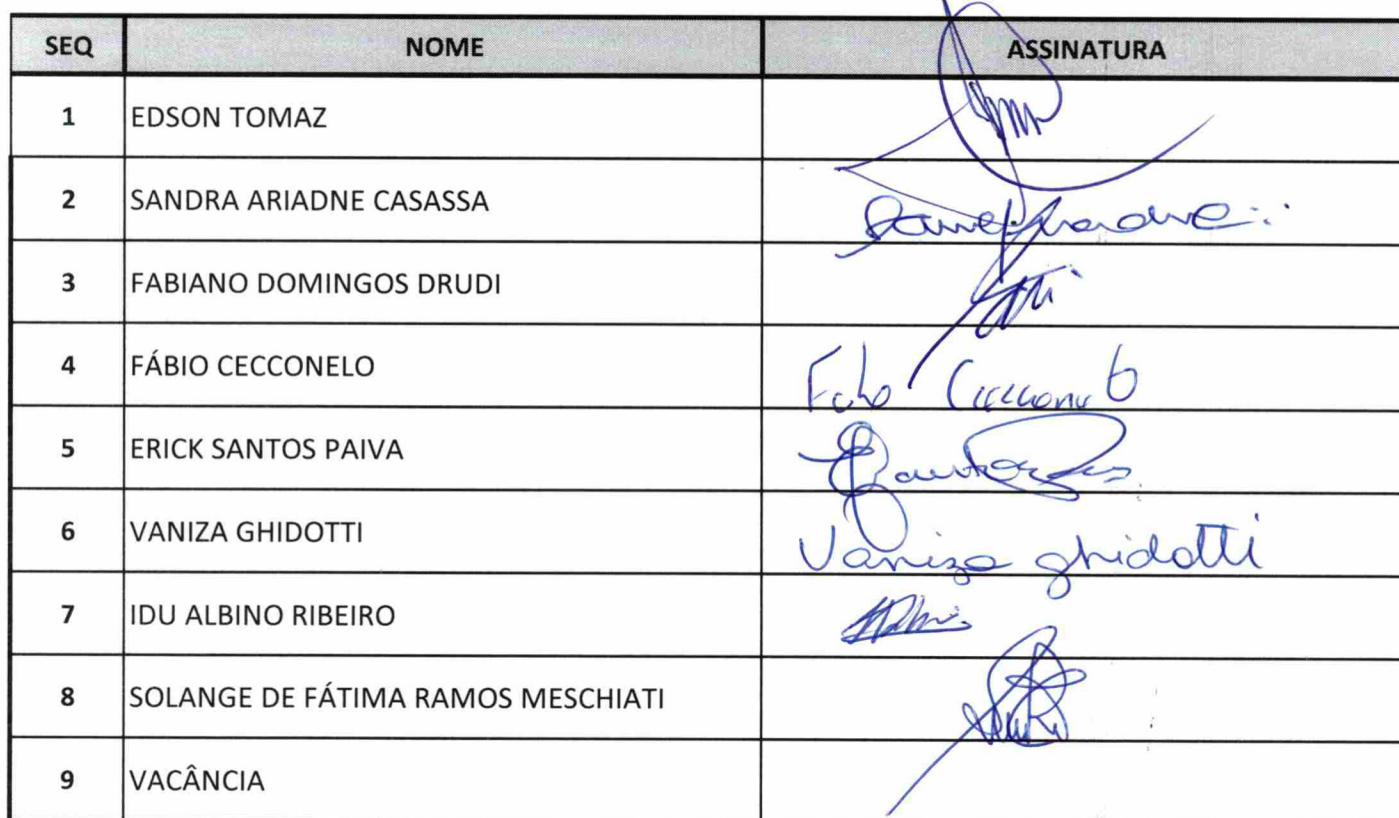 SEQ NOME ASSINATURA
1 EDSON TOMAZ
2 SANDRA ARIADNE CASASSA
3 FABIANO DOMINGOS DRUDI
4 FÁBIO CECCONELO
5 ERICK SANTOS PAIVA
6 VANIZA GHIDOTTI Vaniza ghidotti
7 IDU ALBINO RIBEIRO
8 SOLANGE DE FÁTIMA RAMOS MESCHIATI
9 VACÂNCIA